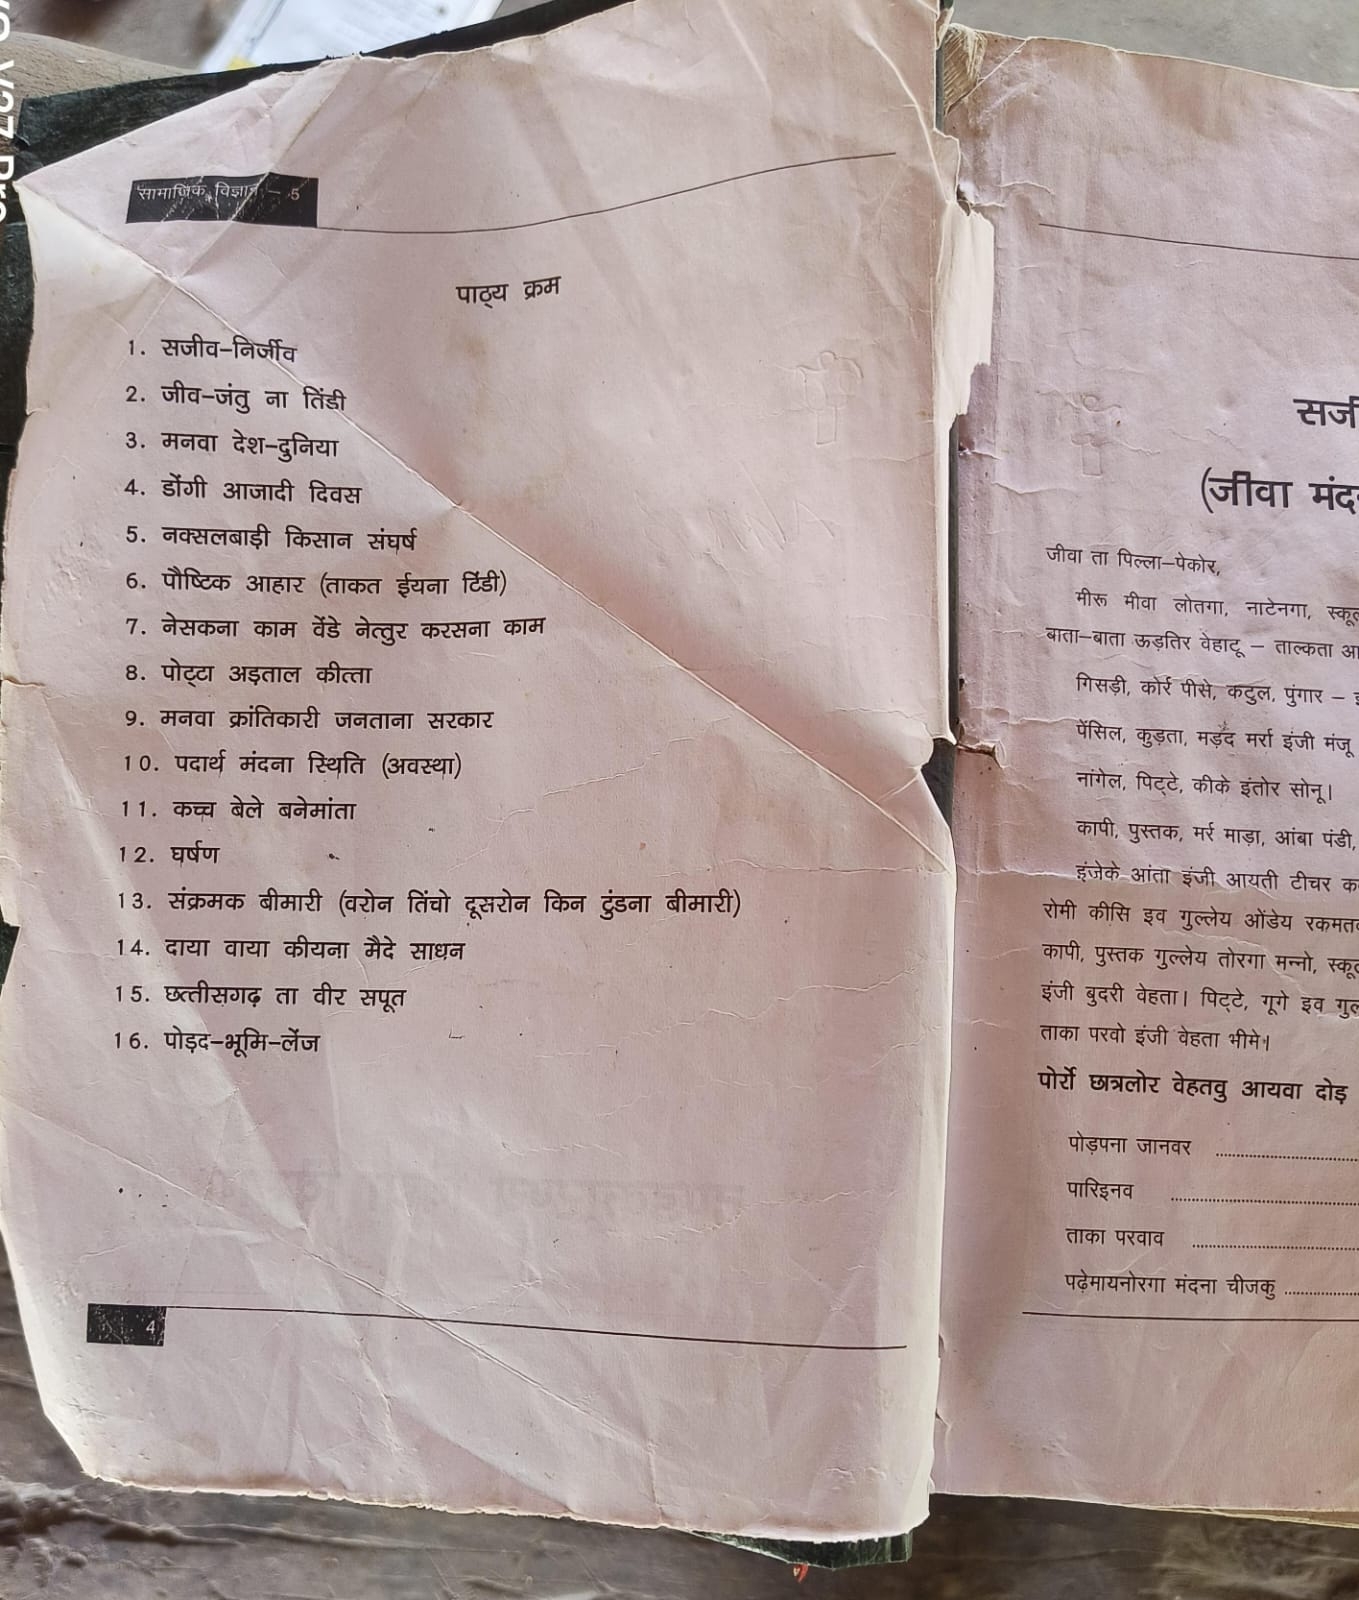 सामाजिक विज्ञान – 5
पाठ्य क्रम
1. सजीव–निर्जीव
2. जीव–जंतु ना तिंडी
3. मनवा देश–दुनिया
4. डोंगी आजादी दिवस
5. नक्सलबाड़ी किसान संघर्ष
6. पौष्टिक आहार (ताकत ईयना टिंडी)
7. नेसकना काम वेंडे नेत्तुर करसना काम
8. पोट्टा अड़ताल कीत्ता
9. मनवा क्रांतिकारी जनताना सरकार
10. पदार्थ मंदना स्थिति (अवस्था)
11. कच्च बेले बनेमांता
12. घर्षण
13. संक्रमक बीमारी (वरोन तिंचो दूसरोन किन टुंडना बीमारी)
14. दाया वाया कीयना मैदे साधन
15. छत्तीसगढ़ ता वीर सपूत
16. पोड़द–भूमि–लेंज
4
(जीवा
जीवा ता पिल्ला–पेकोर,
मीरू मीवा लोतगा, नाटेनगा,
बाता–बाता ऊड़तिर वेहाटू – ताल्कता
गिसड़ी, कोर्र पीसे, कटुल, पुंगार –
पेंसिल, कुड़ता, मड़द मर्रा इंजी मंजू
नांगेल, पिट्टे, कीके इंतोर सोनू।
कापी, पुस्तक, मर्र माड़ा, आंबा पंडी,
इंजेके आंता इंजी आयती टीचर
रोमी कीसि इव गुल्लेय ओंडेय
कापी, पुस्तक गुल्लेय तोरगा मन्नो,
इंजी बुदरी वेहता। पिट्टे, गूगे इव
ताका परवो इंजी वेहता भीमे।
पोर्रो छात्रलोर वेहतवु आयवा दोड़
पोड़पना जानवर
पारिइनव
ताका परवाव
पढ़ेमायनोरगा मंदना चीजकु